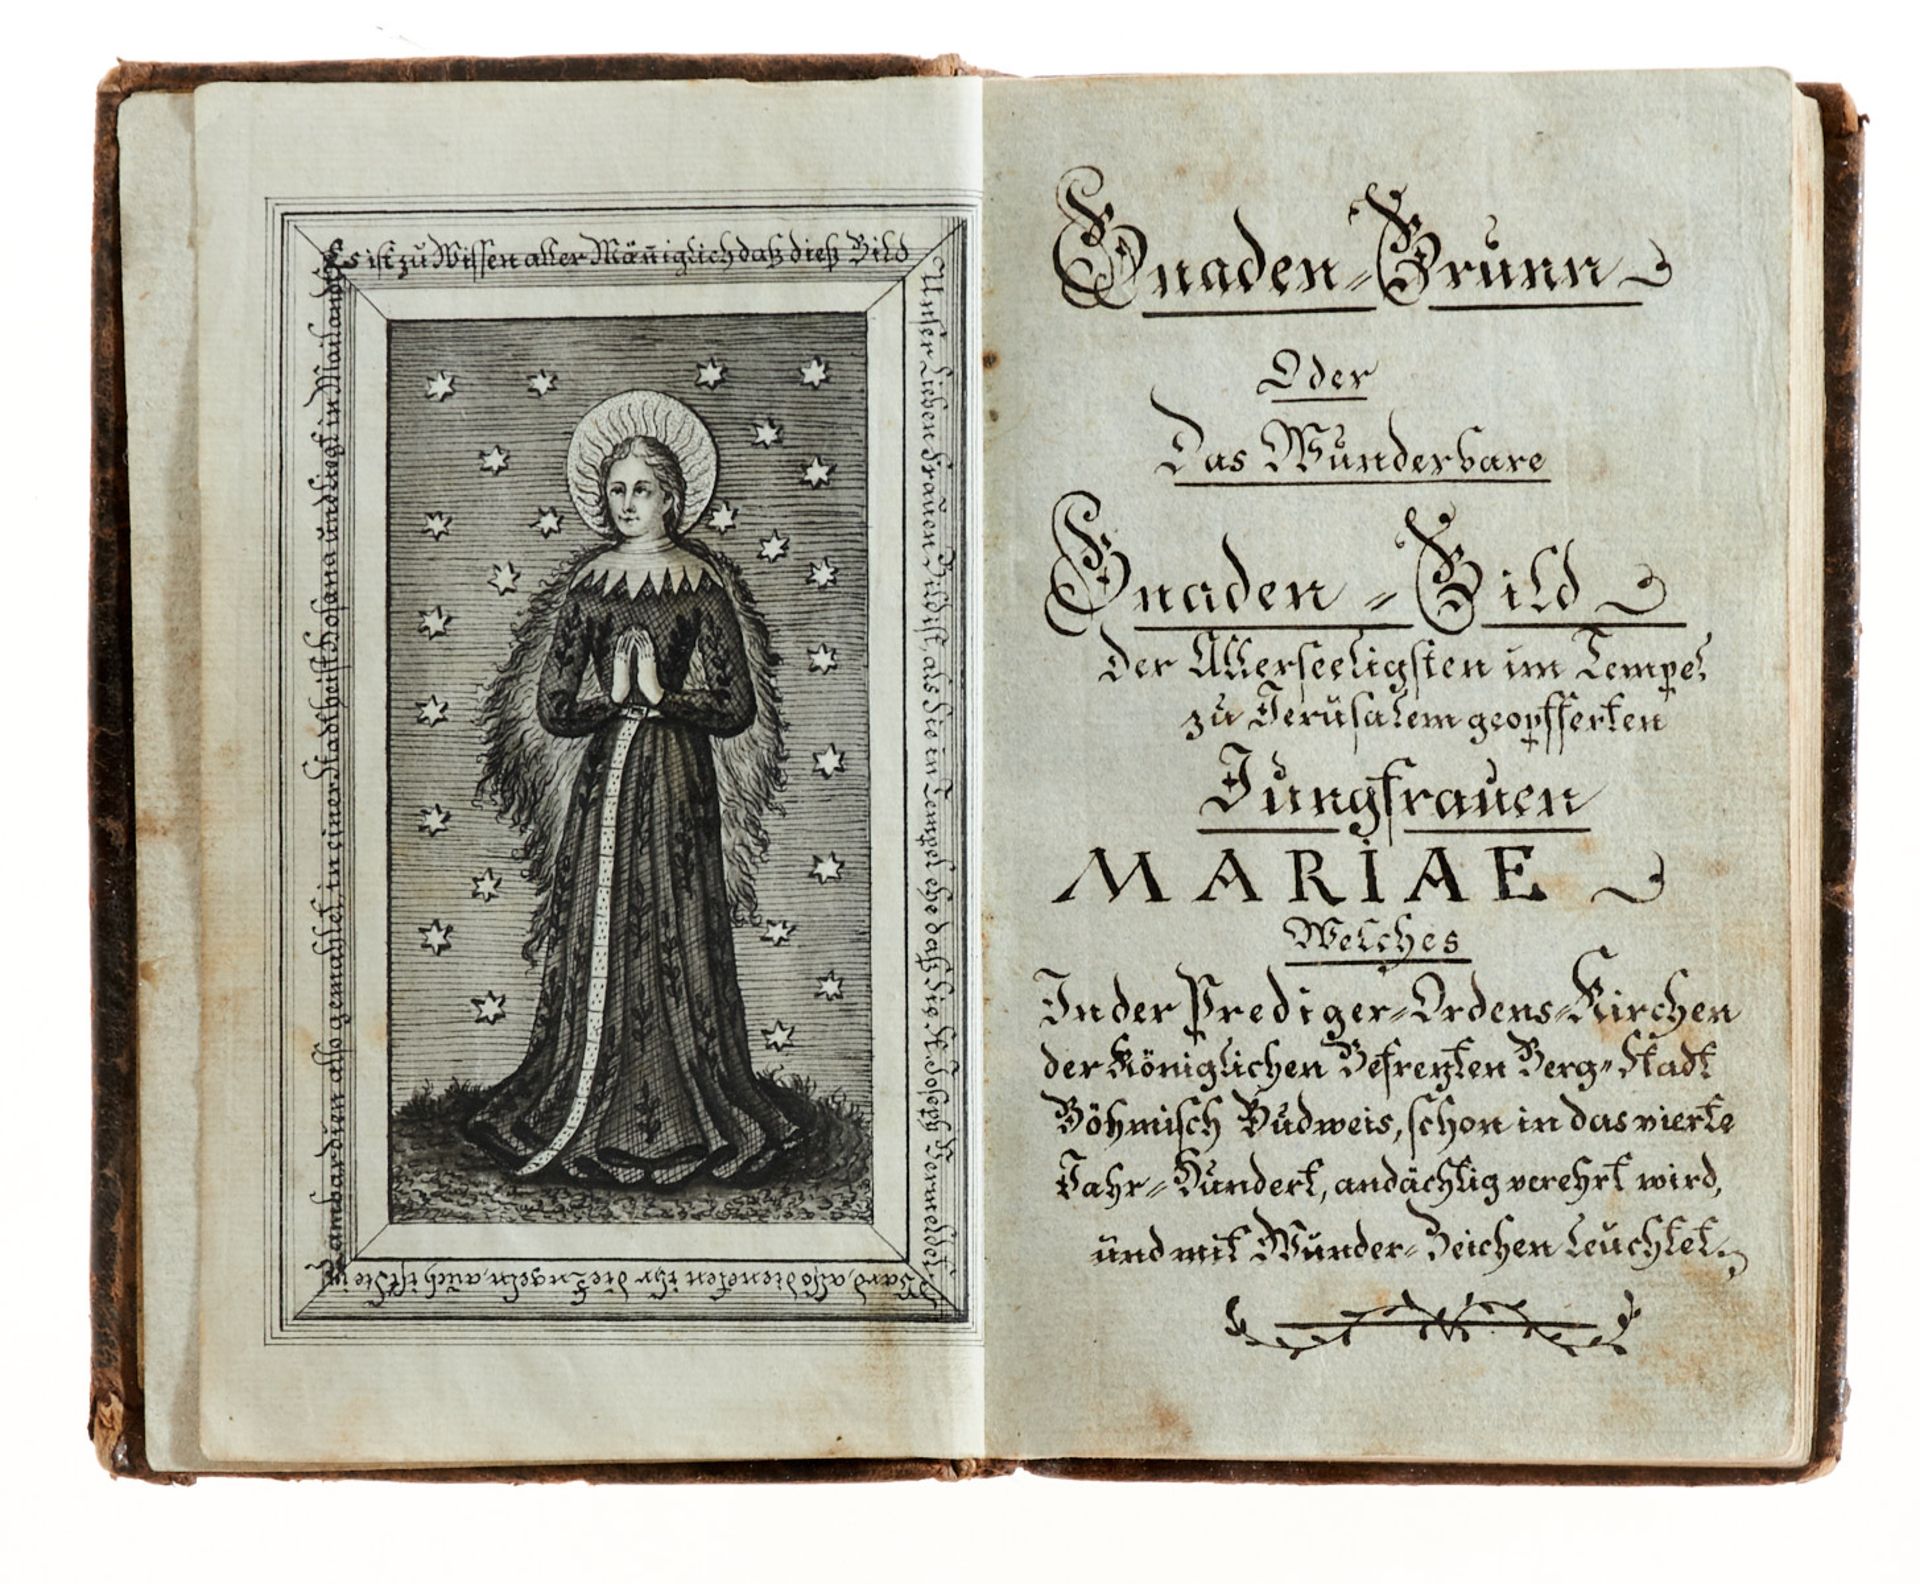 Es ist zu Wissen aller Mäñiglich daß dieß Bild
Unser Lieben Frauen Bild ist, als Sie in Tempel ehe daß Sie S. Joseph Vermehlet
Ward, also dieneten ihr die Engeln, auch ist Sie in
Lambardien also gemahlet, in einer Stadt heist Hosana und liegt in Mailander
Gnaden-Brunn
Oder
Das Wunderbare
Gnaden-Bild
Der Allerseeligsten im Tempel
zu Jerusalem geopfferten
Jungfrauen
MARIAE
Welches
In der Prediger-Ordens-Kirchen
der Königlichen Befreyten Berg-Stadt
Böhmisch Budweis, schon in das vierte
Jahr-Hundert, andächtig verehrt wird,
und mit Wunder-Zeichen leuchtet.